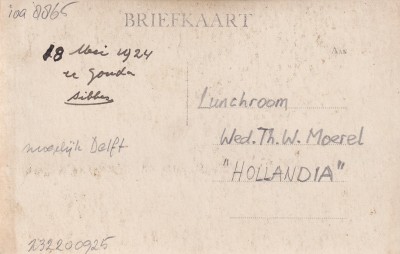 ioa 8865
BRIEFKAART
18 Mei 1924
Aan
te Gouda
Lunchroom
Wed. Th. W. Moerel
mogelijk Delft
"HOLLANDIA"
232200925